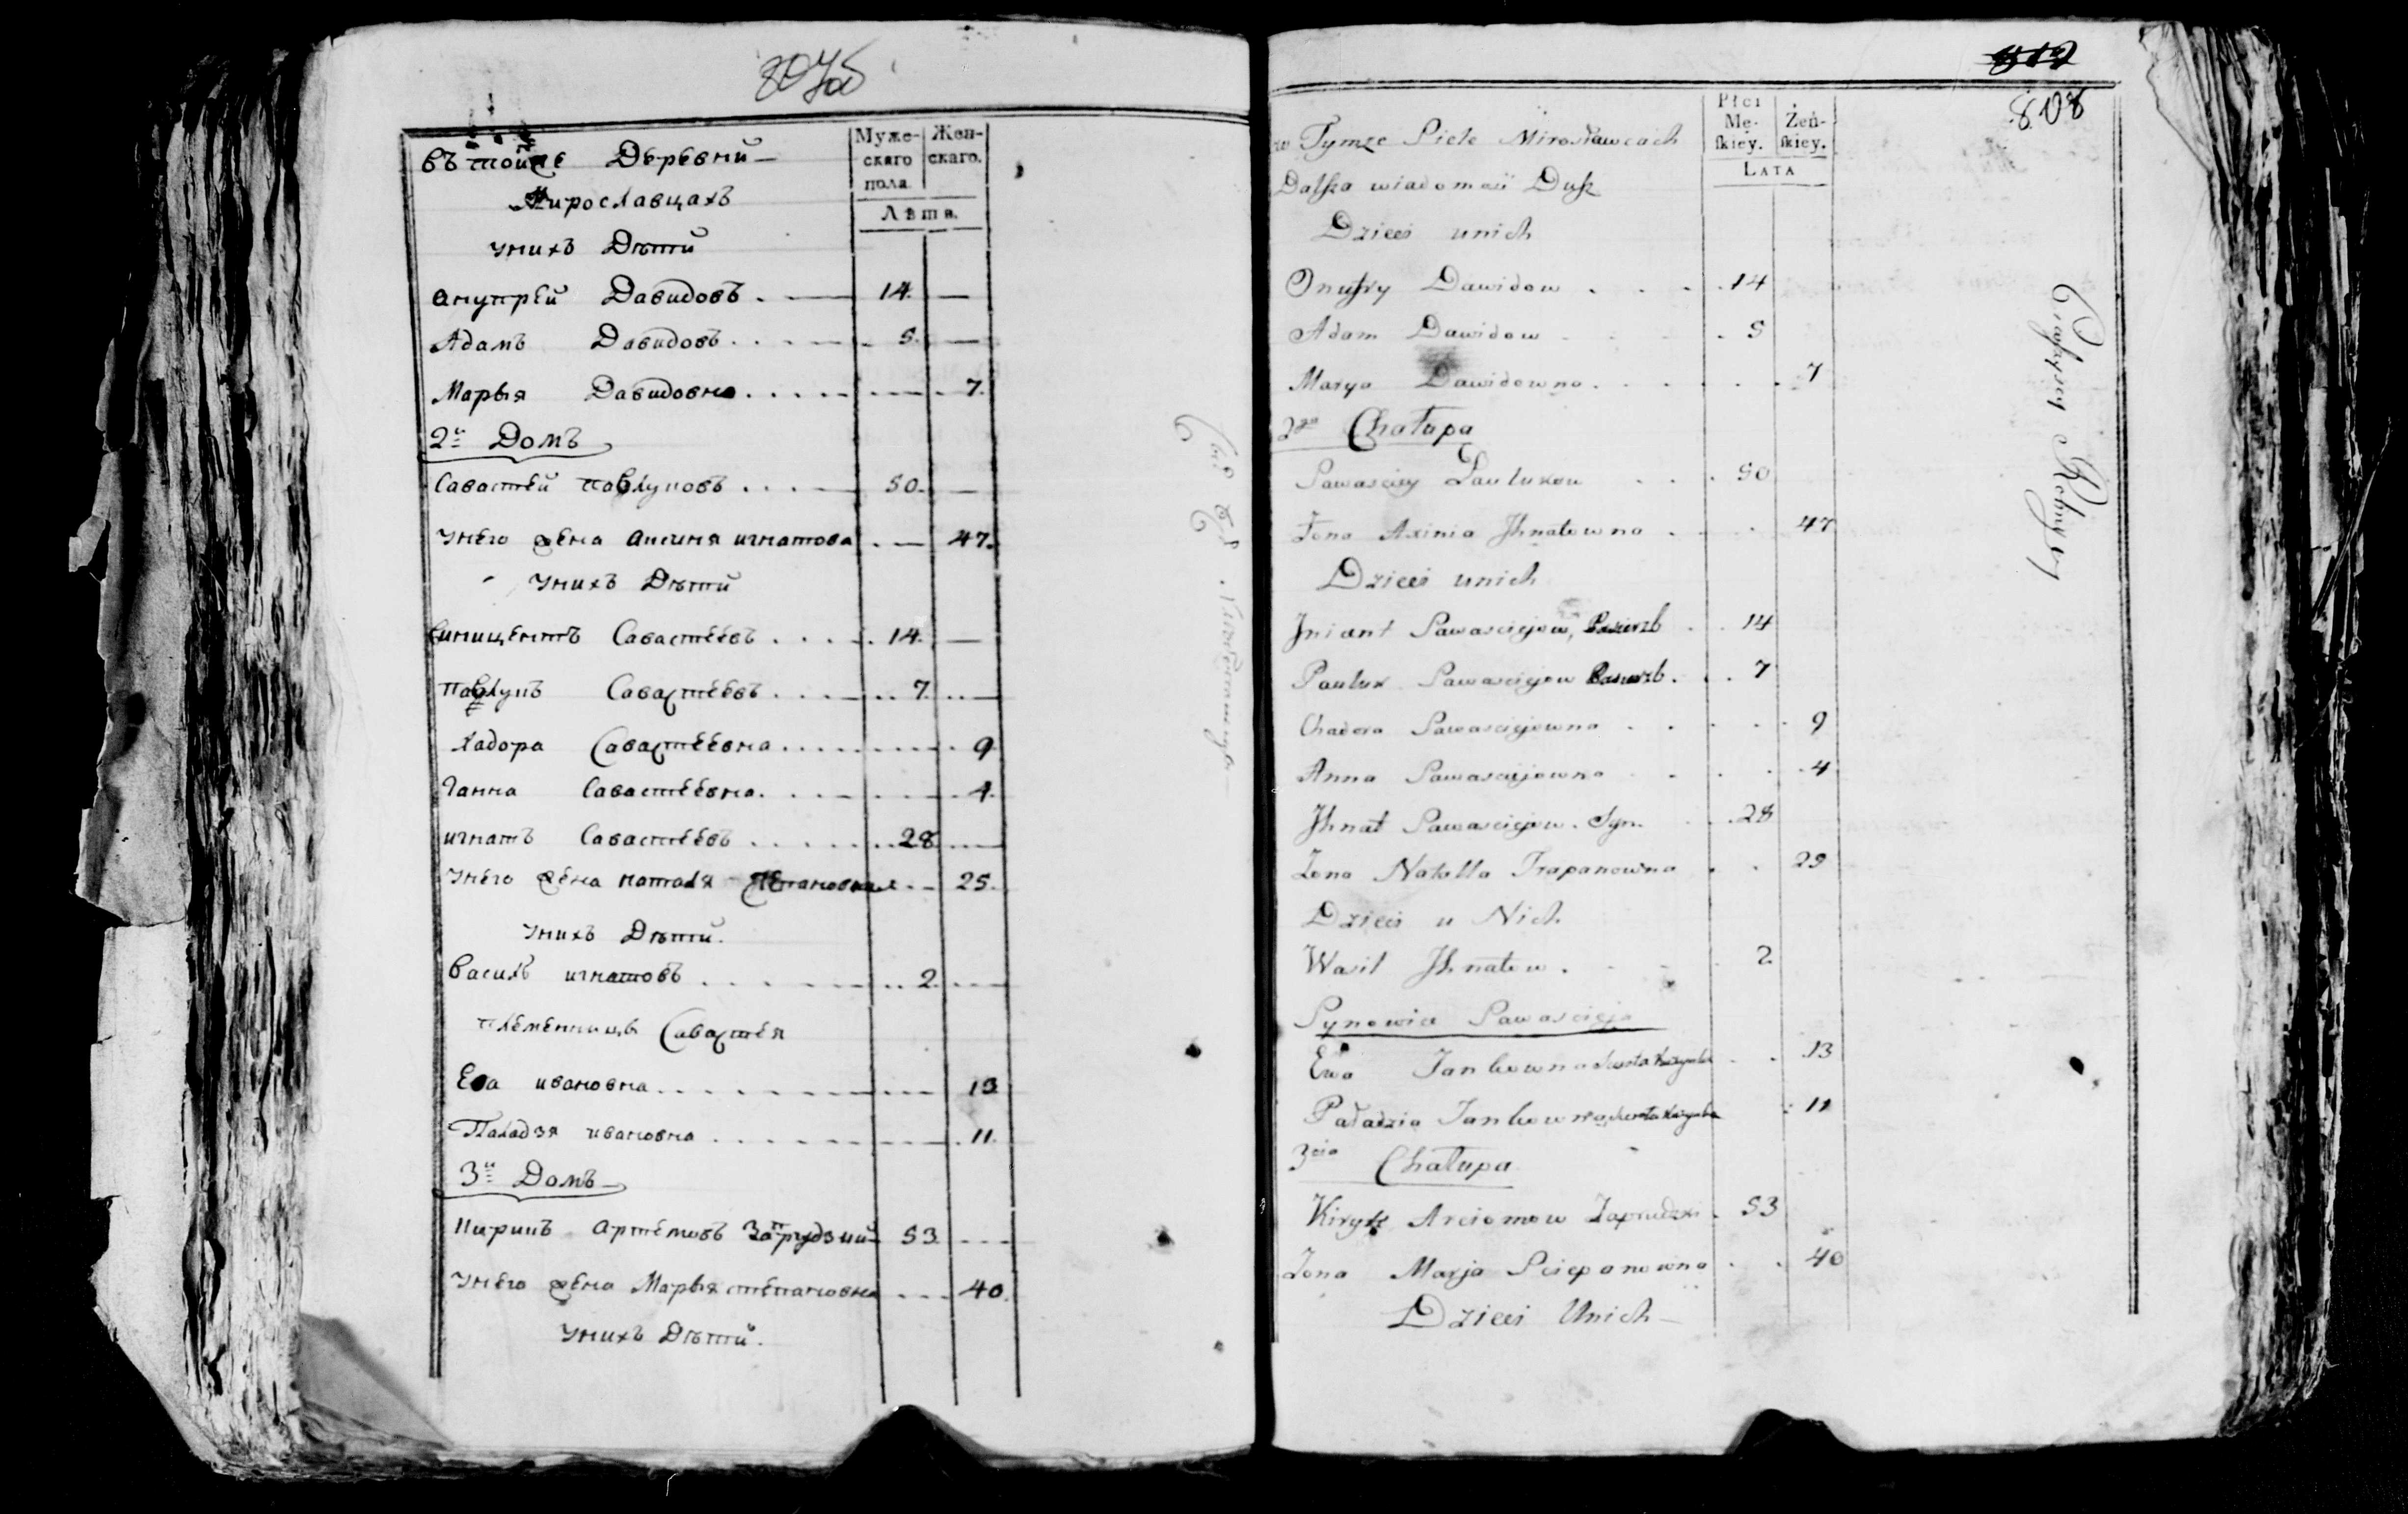 807об
въ тойже Деревни
Мирославцахъ
унихъ Дѣти
Муже-
скаго
пола
Жен-
скаго.
Лѣта.
Анупрей Давидовъ 14
Адамъ Давидовъ 5
Марья Давидовна 7
2й Домъ
Савастей Павлуковъ 50
унего жена Аксиня игнатова 47
унихъ Дѣти
Савастеевъ 14
Павлукъ Савастеевъ 7
Хадора Савастеевна 9
Ганна Савастеевна 4
игнатъ Савастеевъ 28
унего жена наталя 25
унихъ Дѣти
Василь игнатовъ 2
племенницы Савастея
Ева ивановна 13
Паладзя ивановна 11
3й Домъ
Кирикъ Артемовъ Запрудзкий 53
унего жена Марья степановна 40
унихъ Дѣти.
808
w Tymże Siele Mirosławcach
Dalsza wiadomość Dusz
Płci
Mę-
skiey.
Żeń-
skiey.
LATA
Dzieci unich
Onufry Dawidow 14
Adam Dawidow 5
Marya Dawidowna 7
2ga Chałupa
Sawasciey Paulukow 50
Żona Axinia Jhnatowna 47
Dzieci unich
Sawasciejow 14
Pauluk Sawasciejow 7
Chadora Sawasciejowna 9
Anna Sawasciejowna 4
Jhnat Sawasciejow Syn 28
Żona Natalla 25
Dzieci u Nich
Wasil Jhnatow 2
Synowice Sawascieja
Ewa Jankowna 13
Paładzia Jankowna 11
3cia Chałupa
Kiryk Arciomow Zaprudzki 53
Żona Marja Sciepanowna 40
Dzieci Unich